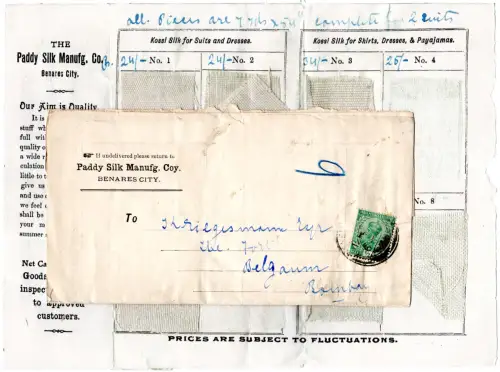 all. Pieces are 7 yds x 54" complete for 2 suits
THE
Paddy Silk Manufg. Co.
Benares City.
Kosai Silk for Suits and Dresses.
Kosai Silk for Shirts, Dresses, & Payajamas.
24/- No. 1
24/- No. 2
34/- No. 3
25/- No. 4
Our Aim is Quality
It is
stuff wh
full with
quality o
a wide r
culation
little to
give us
and use
we feel
shall be
your m
summer
No. 8
If undelivered please return to
Paddy Silk Manufg. Coy.
BENARES CITY.
To
Esqr
The Fort
Belgaum
Bombay
Net Ca
Goods
inspec
to approved
customers.
PRICES ARE SUBJECT TO FLUCTUATIONS.